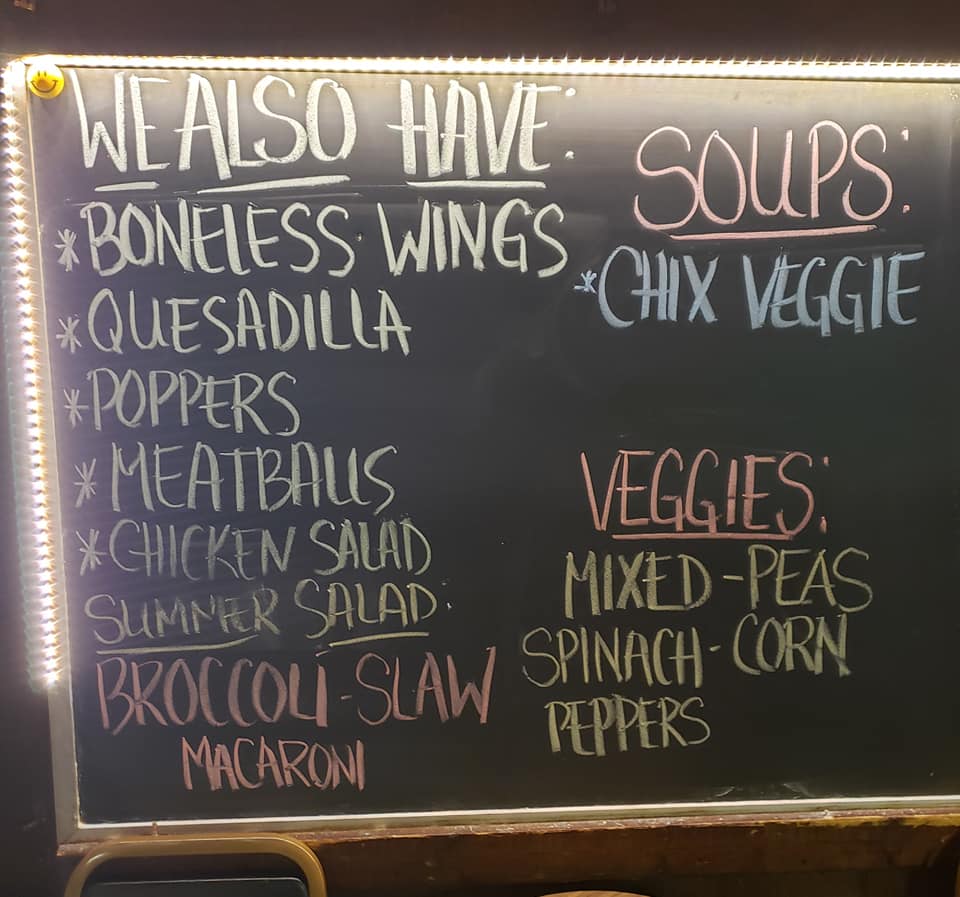 WE ALSO HAVE:
*BONELESS WINGS
*QUESADILLA
*POPPERS
*MEATBALLS
*CHICKEN SALAD
SUMMER SALAD:
BROCCOLI-SLAW
MACARONI
SOUPS:
*CHIX VEGGIE
VEGGIES:
MIXED-PEAS
SPINACH-CORN
PEPPERS